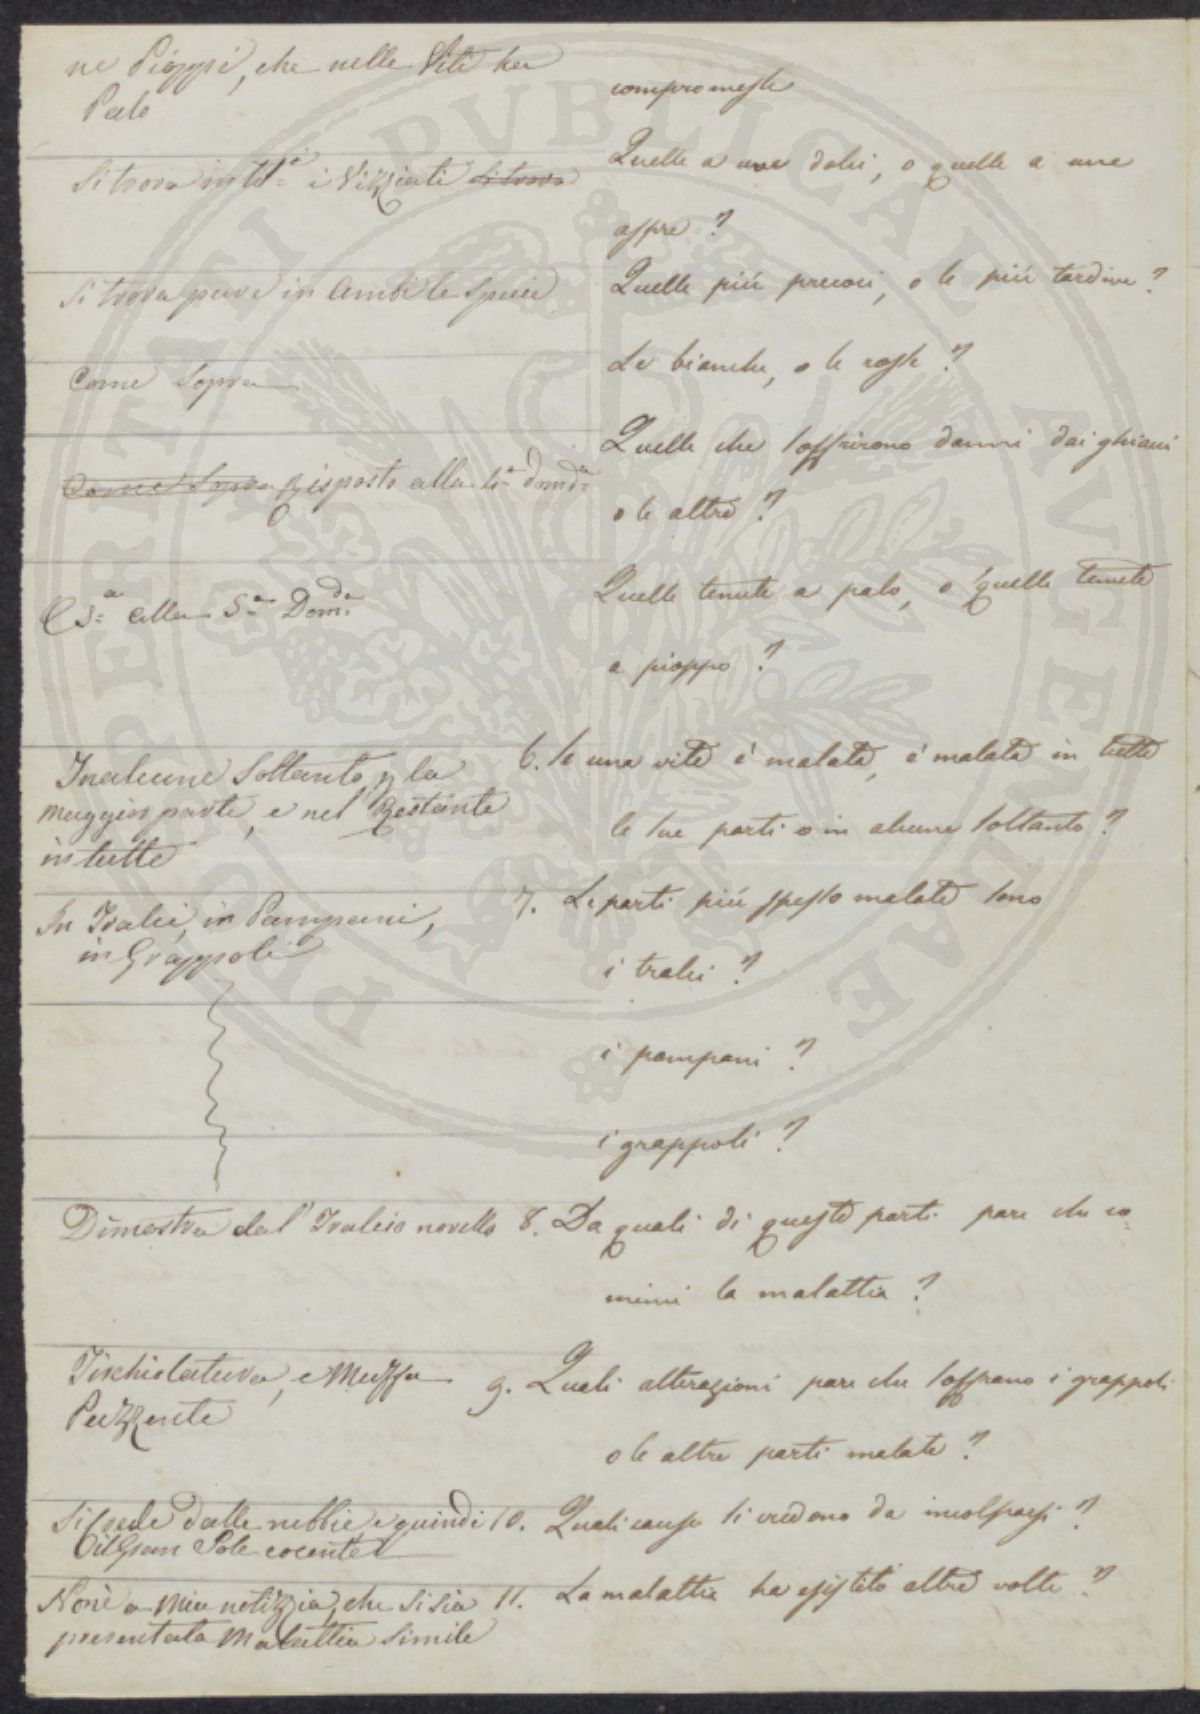 ne Pioppi, che nelle Viti ha
Palo
compromesse
Si trova in tt.i i Vizziati si trova
Quelle a uve dolci, o quelle a uve
aspre?
Si trova pure in Ambi le Specie
Quelle più precoci, o le più tardive?
Come Sopra
Le bianche, o le rosse?
Come Sopra Risposto alla 4.a dom.da
Quelle che soffrirono danni dai ghiacci
o le altre?
alla 5.a Dom.da
Quelle tenute a palo, o quelle tenute
a pioppo?
In alcune Soltanto p la
maggior parte, e nel Restante
in tutte
6. Se una vite è malata, è malata in tutte
le sue parti o in alcune soltanto?
In Tralci, in Pampani,
in Grappoli
7. Le parti più spesso malate sono
i tralci?
i pampani?
i grappoli?
Dimostra dal Tralcio novello
8. Da quali di queste parti pare che co
minci la malattia?
e Muffa
Puzzente
9. Quali alterazioni pare che soffrano i grappoli
o le altre parti malate?
Si Crede dalle nebbie e quindi
Sole cocente
10. Quali cause si credono da incolparsi?
Non è a Mia notizzia, che Si Sia
presentata Malattia Simile
11. La malattia ha esistito altre volte?
PERITATI PVBLICAE AVGENDAE